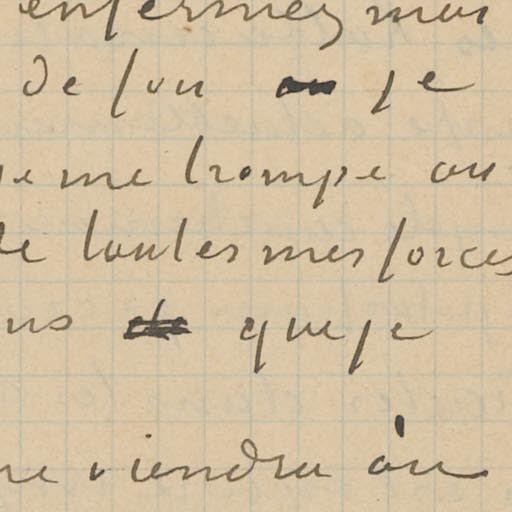 enfermez moi
de fou je
je me trompe ou
de toutes mes forces
ns que je
ne viendra où